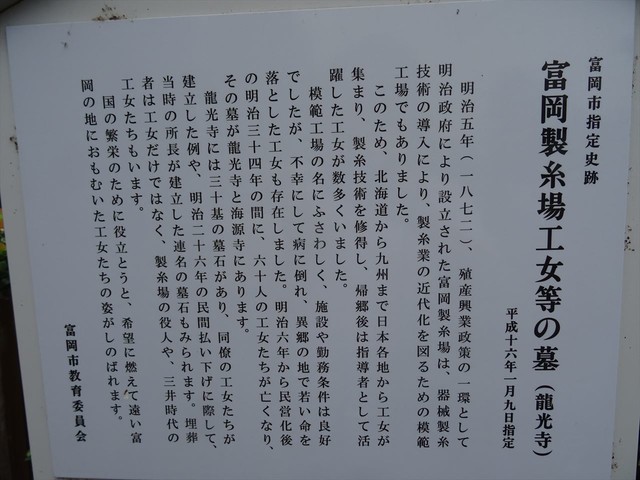 富岡市指定史跡
富岡製糸場工女等の墓（龍光寺）
平成十六年一月九日指定
明治五年（一八七二）、殖産興業政策の一環として
明治政府により設立された富岡製糸場は、器械製糸
技術の導入により、製糸業の近代化を図るための模範
工場でもありました。
このため、北海道から九州まで日本各地から工女が
集まり、製糸技術を修得し、帰郷後は指導者として活
躍した工女が数多くいました。
模範工場の名にふさわしく、施設や勤務条件は良好
でしたが、不幸にして病に倒れ、異郷の地で若い命を
落とした工女も存在しました。明治六年から民営化後
の明治三十四年の間に、六十人の工女たちが亡くなり、
その墓が龍光寺と海源寺にあります。
龍光寺には三十基の墓石があり、同僚の工女たちが
建立した例や、明治二十六年の民間払い下げに際して、
当時の所長が建立した連名の墓石もみられます。埋葬
者は工女だけではなく、製糸場の役人や、三井時代の
工女たちもいます。
国の繁栄のために役立とうと、希望に燃えて遠い富
岡の地におもむいた工女たちの姿がしのばれます。
富岡市教育委員会